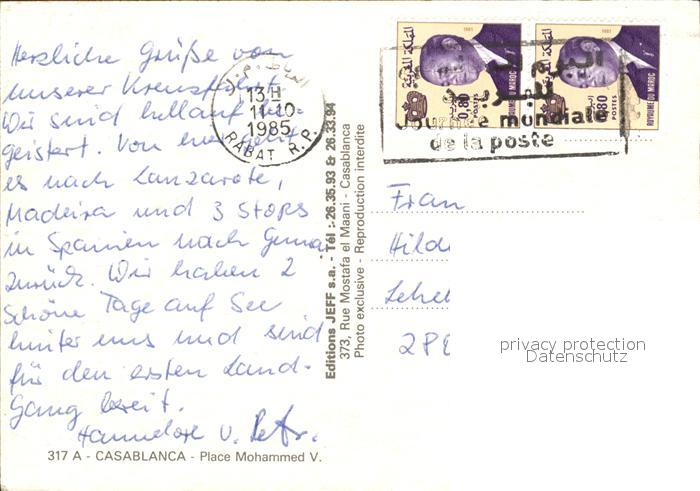 Herzliche Grüße von
unserer Kreuzfahrt.
Wir sind hellauf be-
geistert. Von hier geht
es nach Lanzarote,
Madeira und 3 Stops
in Spanien nach Genua
zurück. Wir haben 2
schöne Tage auf See
hinter uns und sind
für den ersten Land-
Gang bereit.
Hannelore u. Petr.
317 A - CASABLANCA - Place Mohammed V.
Editions JEFF s.a. - Tél : 26.35.93 & 26.33.94
373, Rue Mostafa el Maani - Casablanca
Photo exclusive - Reproduction interdite
13H
11-10
1985
RABAT R.P.
المملكة المغربية
1981
0,80
POSTES
ROYAUME DU MAROC
المملكة المغربية
1981
0,80
POSTES
ROYAUME DU MAROC
اليوم العالمي
للبريد
Journée mondiale
de la poste
Frau
Hild
Lehe
28
privacy protection
Datenschutz